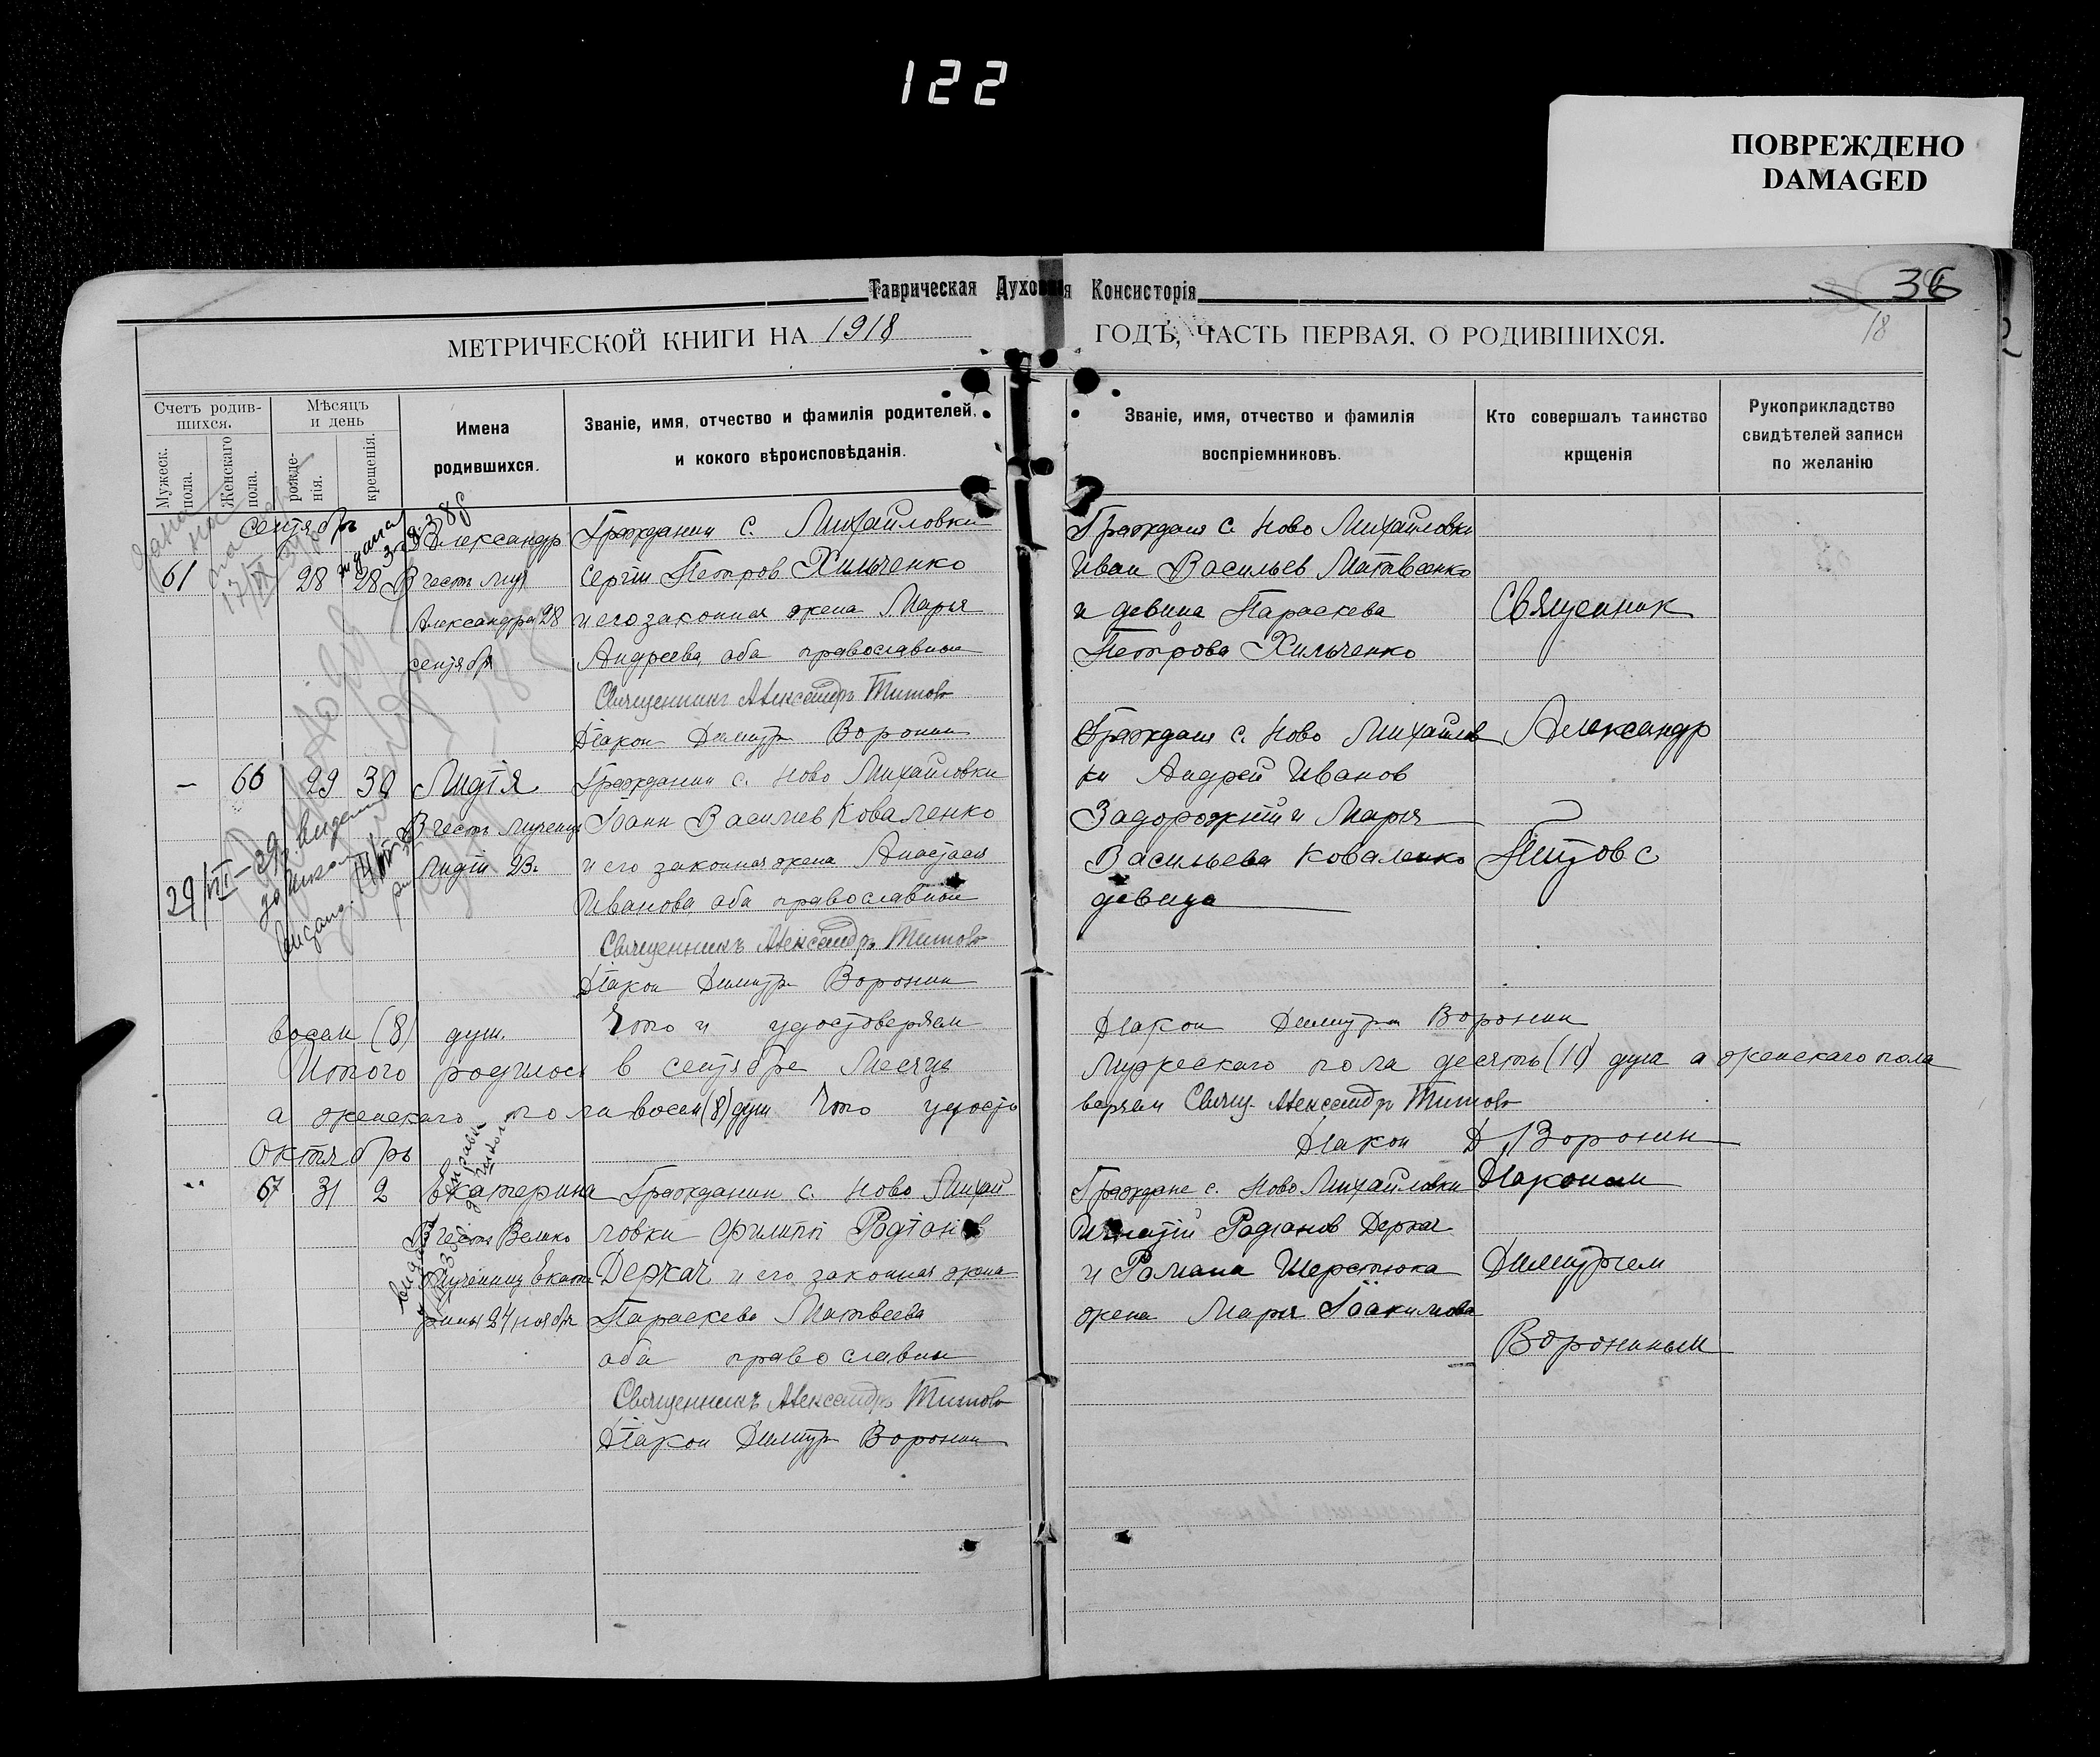 122
ПОВРЕЖДЕНО
DAMAGED
Таврическая Духовная Консисторія
36
18
МЕТРИЧЕСКОЙ КНИГИ НА 1918 ГОДЪ, ЧАСТЬ ПЕРВАЯ, О РОДИВШИХСЯ.
Счетъ родив-
шихся.
Мужеск.
пола.
Женскаго
пола.
Мѣсяцъ
и день
рожде-
нія.
крещенія.
Имена
родившихся.
Званіе, имя, отчество и фамилія родителей,
и кокого вѣроисповѣданія.
Званіе, имя, отчество и фамилія
воспріемниковъ.
Кто совершалъ таинство
крщенія
Рукоприкладство
свидѣтелей записи
по желанію
сентябрь
61 28 28
Александр
В честь муч
Александра 28
сентября
Гражданин с. Михайловки
Сергіи Петров Хильченко
и его законная жена Марья
Андреева, оба православныи
Священникъ Александръ Титовъ
Діакон Димитр Воронин
Граждане с. Ново Михайловки
Иван Васильев Матвеенко
и девица Параскева
Петрова Хильченко
Священник
Александр
Титов
— 66 29 30
Лидія
В честь мученицы
Лидіи 23.
Гражданин с. Ново Михайловки
Іоанн Васильев Коваленко
и его законная жена Анастасія
Иванова, оба православныи
Священникъ Александръ Титовъ
Діакон Димитр Воронин
Граждане с. Ново Михайлов
ки Андрей Иванов
Задорожнiй и Марья
Васильева Коваленко
девица
29/VII–29. Выдана
восем (8) душ. Что и удостоверяем
Діакон Димитри Воронин
Итого родилось в сентябре месяце Мужескаго пола десять (10) душ а женскаго пола
а женскаго пола восем (8) душ Что удосто
веряем Свящ. Александръ Титовъ
Діакон Д. Воронин
Октябрь
67 31 2
Екатерина
В честь Велико
мученицы Екате
рины 24 ноября
Гражданин с. Ново Михай
ловки Филипп Родіонов
Деркач и его законная жена
Параскева Матвеева
оба православныи
Священникъ Александръ Титовъ
Діакон Димитр Воронин
Граждане с. Ново Михайловки
Игнатiй Родіонов Деркач
и Романа Шерстюка
жена Марья Іоакимова
Діаконом
Димитрiем
Ворониным